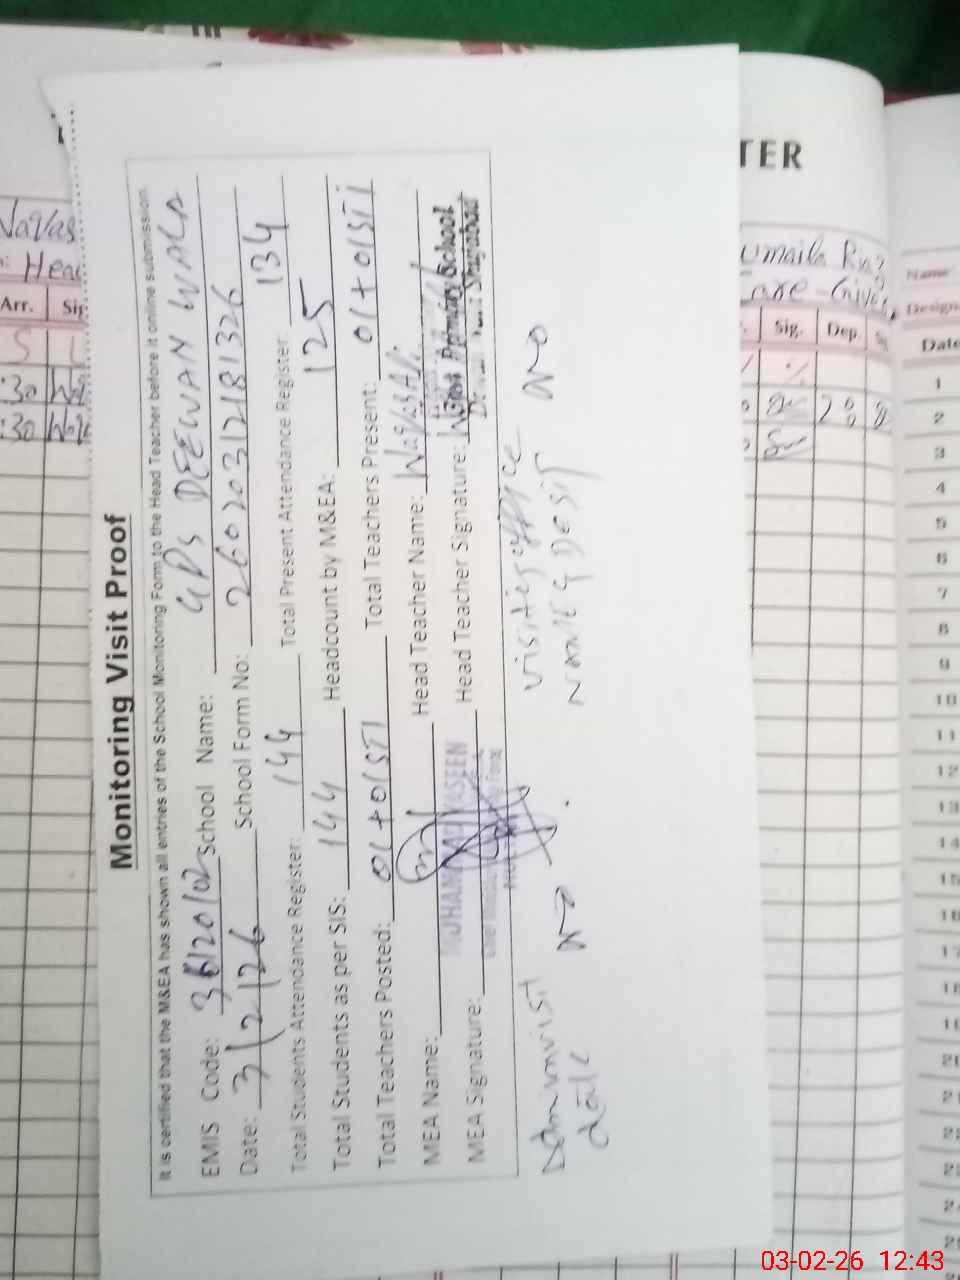 Monitoring Visit Proof
It is certified that the M&EA has shown all entries of the School Monitoring Form to the Head Teacher before it online submission.
EMIS Code: 36120102 School Name: GPS DEEWAN WALA
Date: 3/2/26 School Form No: 26020312181326
Total Students Attendance Register: 144 Total Present Attendance Register: 134
Total Students as per SIS: 144 Headcount by M&EA: 125
Total Teachers Posted: 01+01STI Total Teachers Present: 01+01STI
MEA Name: Head Teacher Name: Waqas Ali
MUHAMMAD YASEEN
MEA Signature: Head Teacher Signature: Primary School
Administ visiting office
date No . Name & Desig No
TER
Navas
: Head
Arr. Sig
:30
:30
umaila Riaz
Care-Giver
Sig. Dep.
Name
Design
Date
1
2
3
4
5
6
7
8
9
10
11
12
13
14
15
16
17
18
19
03-02-26 12:43